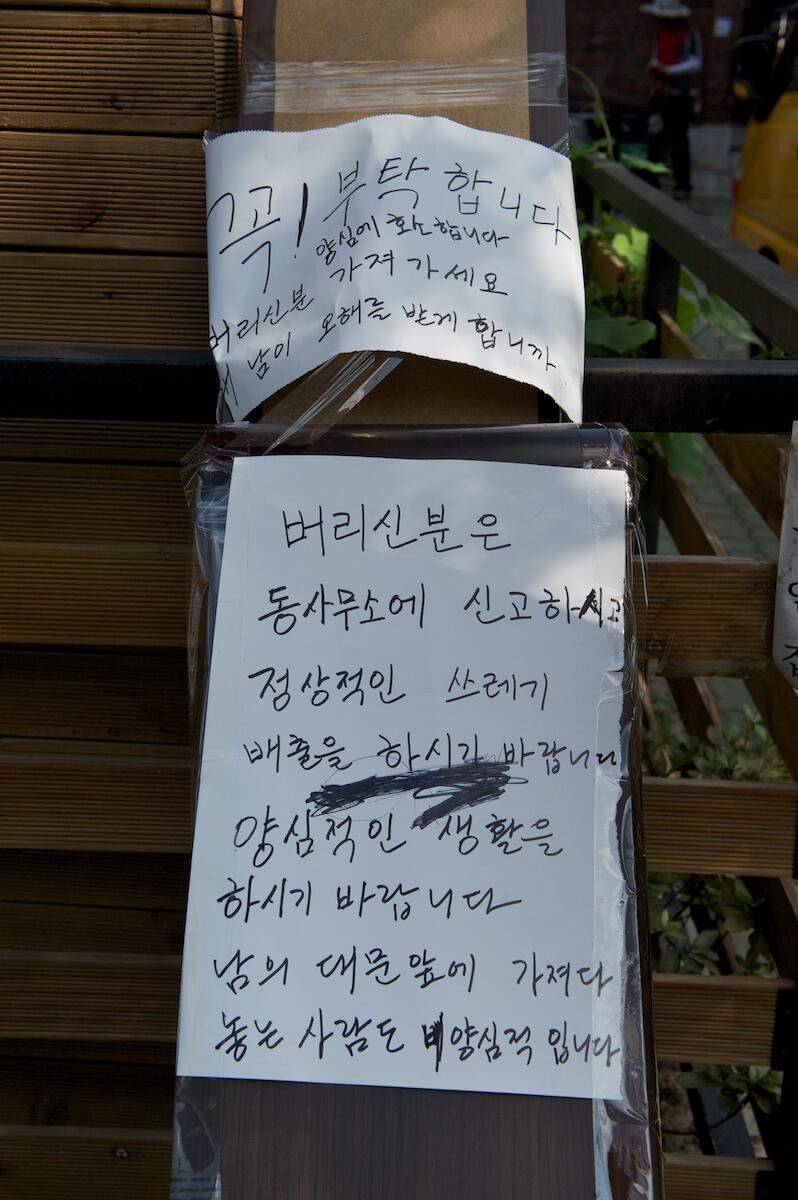 꼭! 부탁합니다
양심에 호소합니다
버리신분 가져가세요
남이 오해를 받게 합니까
버리신분은
동사무소에 신고하시고
정상적인 쓰레기
배출을 하시기 바랍니다
양심적인 생활을
하시기 바랍니다
남의 대문앞에 가져다
놓는 사람도 비양심적 입니다